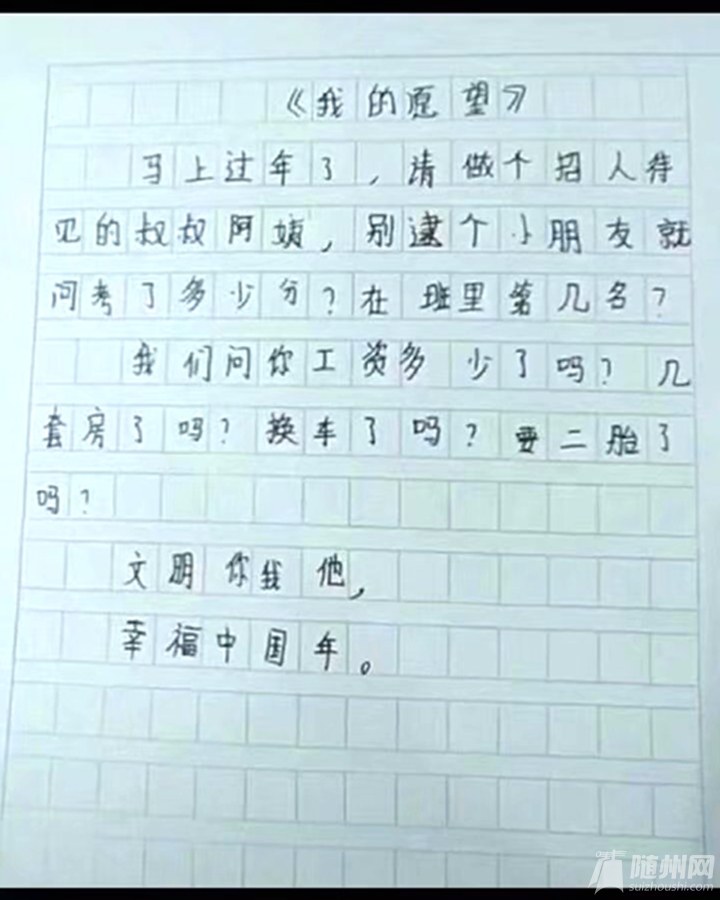 《我的愿望》
马上过年了，请做个招人待
见的叔叔阿姨，别逮个小朋友就
问考了多少分？在班里第几名？
我们问你工资多少了吗？几
套房了吗？换车了吗？要二胎了
吗？
文明你我他，
幸福中国年。
随州网
suizhoushi.com